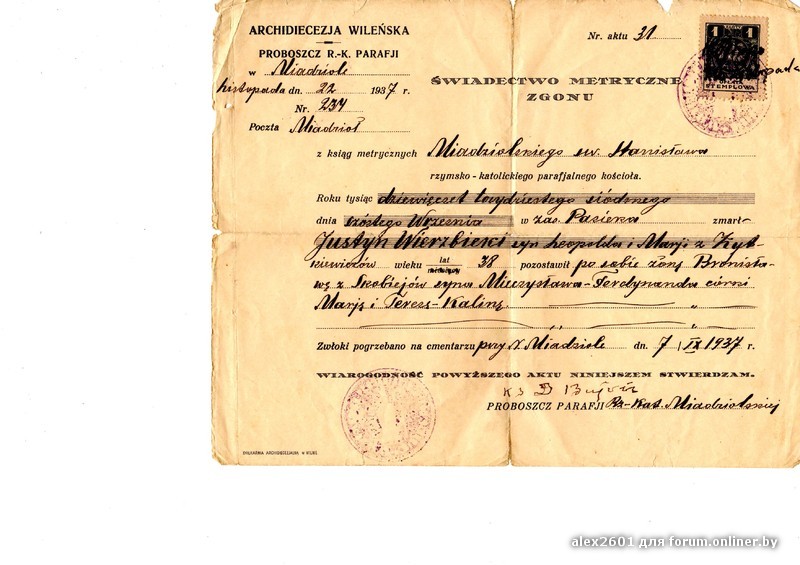 ARCHIDIECEZJA WILEŃSKA
PROBOSZCZ R.-K. PARAFJI
w Miadziole
listopada dn. 22 1937 r.
Nr. 234
Poczta Miadzioł
Nr. aktu 31
1 1
OPŁATA
STEMPLOWA
ŚWIADECTWO METRYCZNE
ZGONU
z ksiąg metrycznych Miadziolskiego św. Stanisława
rzymsko-katolickiego parafjalnego kościoła.
Roku tysiąc dziewięćset trzydziestego siódmego
dnia szóstego Września w zaś. Pasieka zmarł
Justyn Wierzbicki syn Leopolda i Marji z
wieku lat 38 pozostawił po sobie żonę Bronisła-
wę z Skobiejów syna Mieczysława-Ferdynanda córki
Marję i Teresę-Kalinę
Zwłoki pogrzebano na cmentarzu przy N. Miadziole dn. 7/IX 1937 r.
WIAROGODNOŚĆ POWYŻSZEGO AKTU NINIEJSZEM STWIERDZAM.
Ks B
PROBOSZCZ PARAFJI Rz-Kat. Miadziolskiej
DRUKARNIA ARCHIDIECEZJALNA W WILNIE
alex2601 для forum.onliner.by